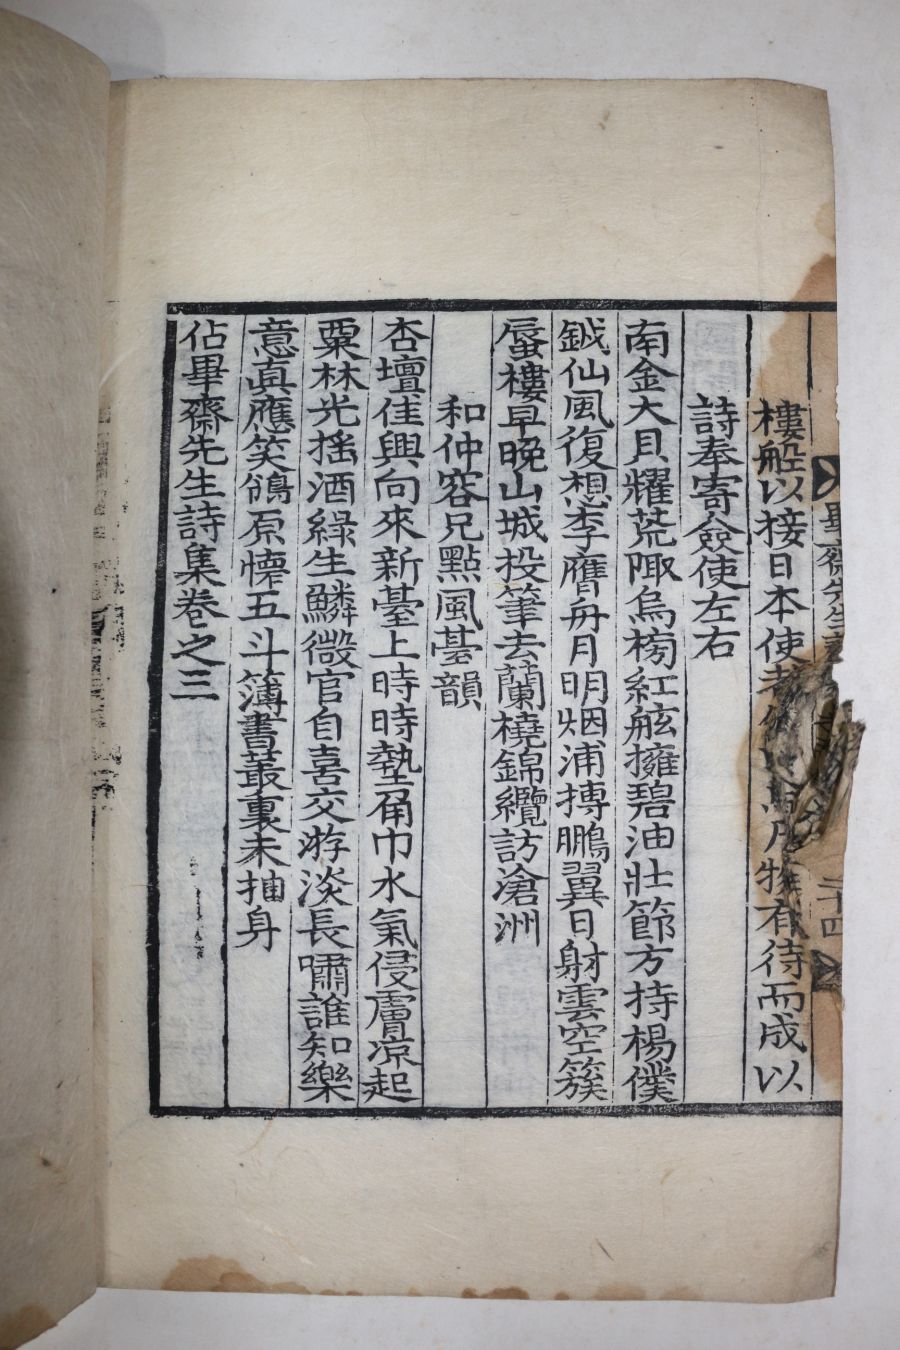 畢齋先生詩 二十四
樓船以接日本使 物有待而成以
詩奉寄僉使左右
南金大貝耀荒陬烏榜紅舷擁碧油壯節方持楊僕
鉞仙風復想李膺舟月明烟浦摶鵬翼日射雲空簇
蜃樓早晩山城投筆去蘭橈錦纜訪滄洲
和仲容兄點風臺韻
杏壇佳興向來新臺上時時墊角巾水氣侵膚凉起
粟林光搖酒綠生鱗微官自喜交游淡長嘯誰知樂
意眞應笑鴒原懷五斗簿書叢裏未抽身
佔畢齋先生詩集卷之三